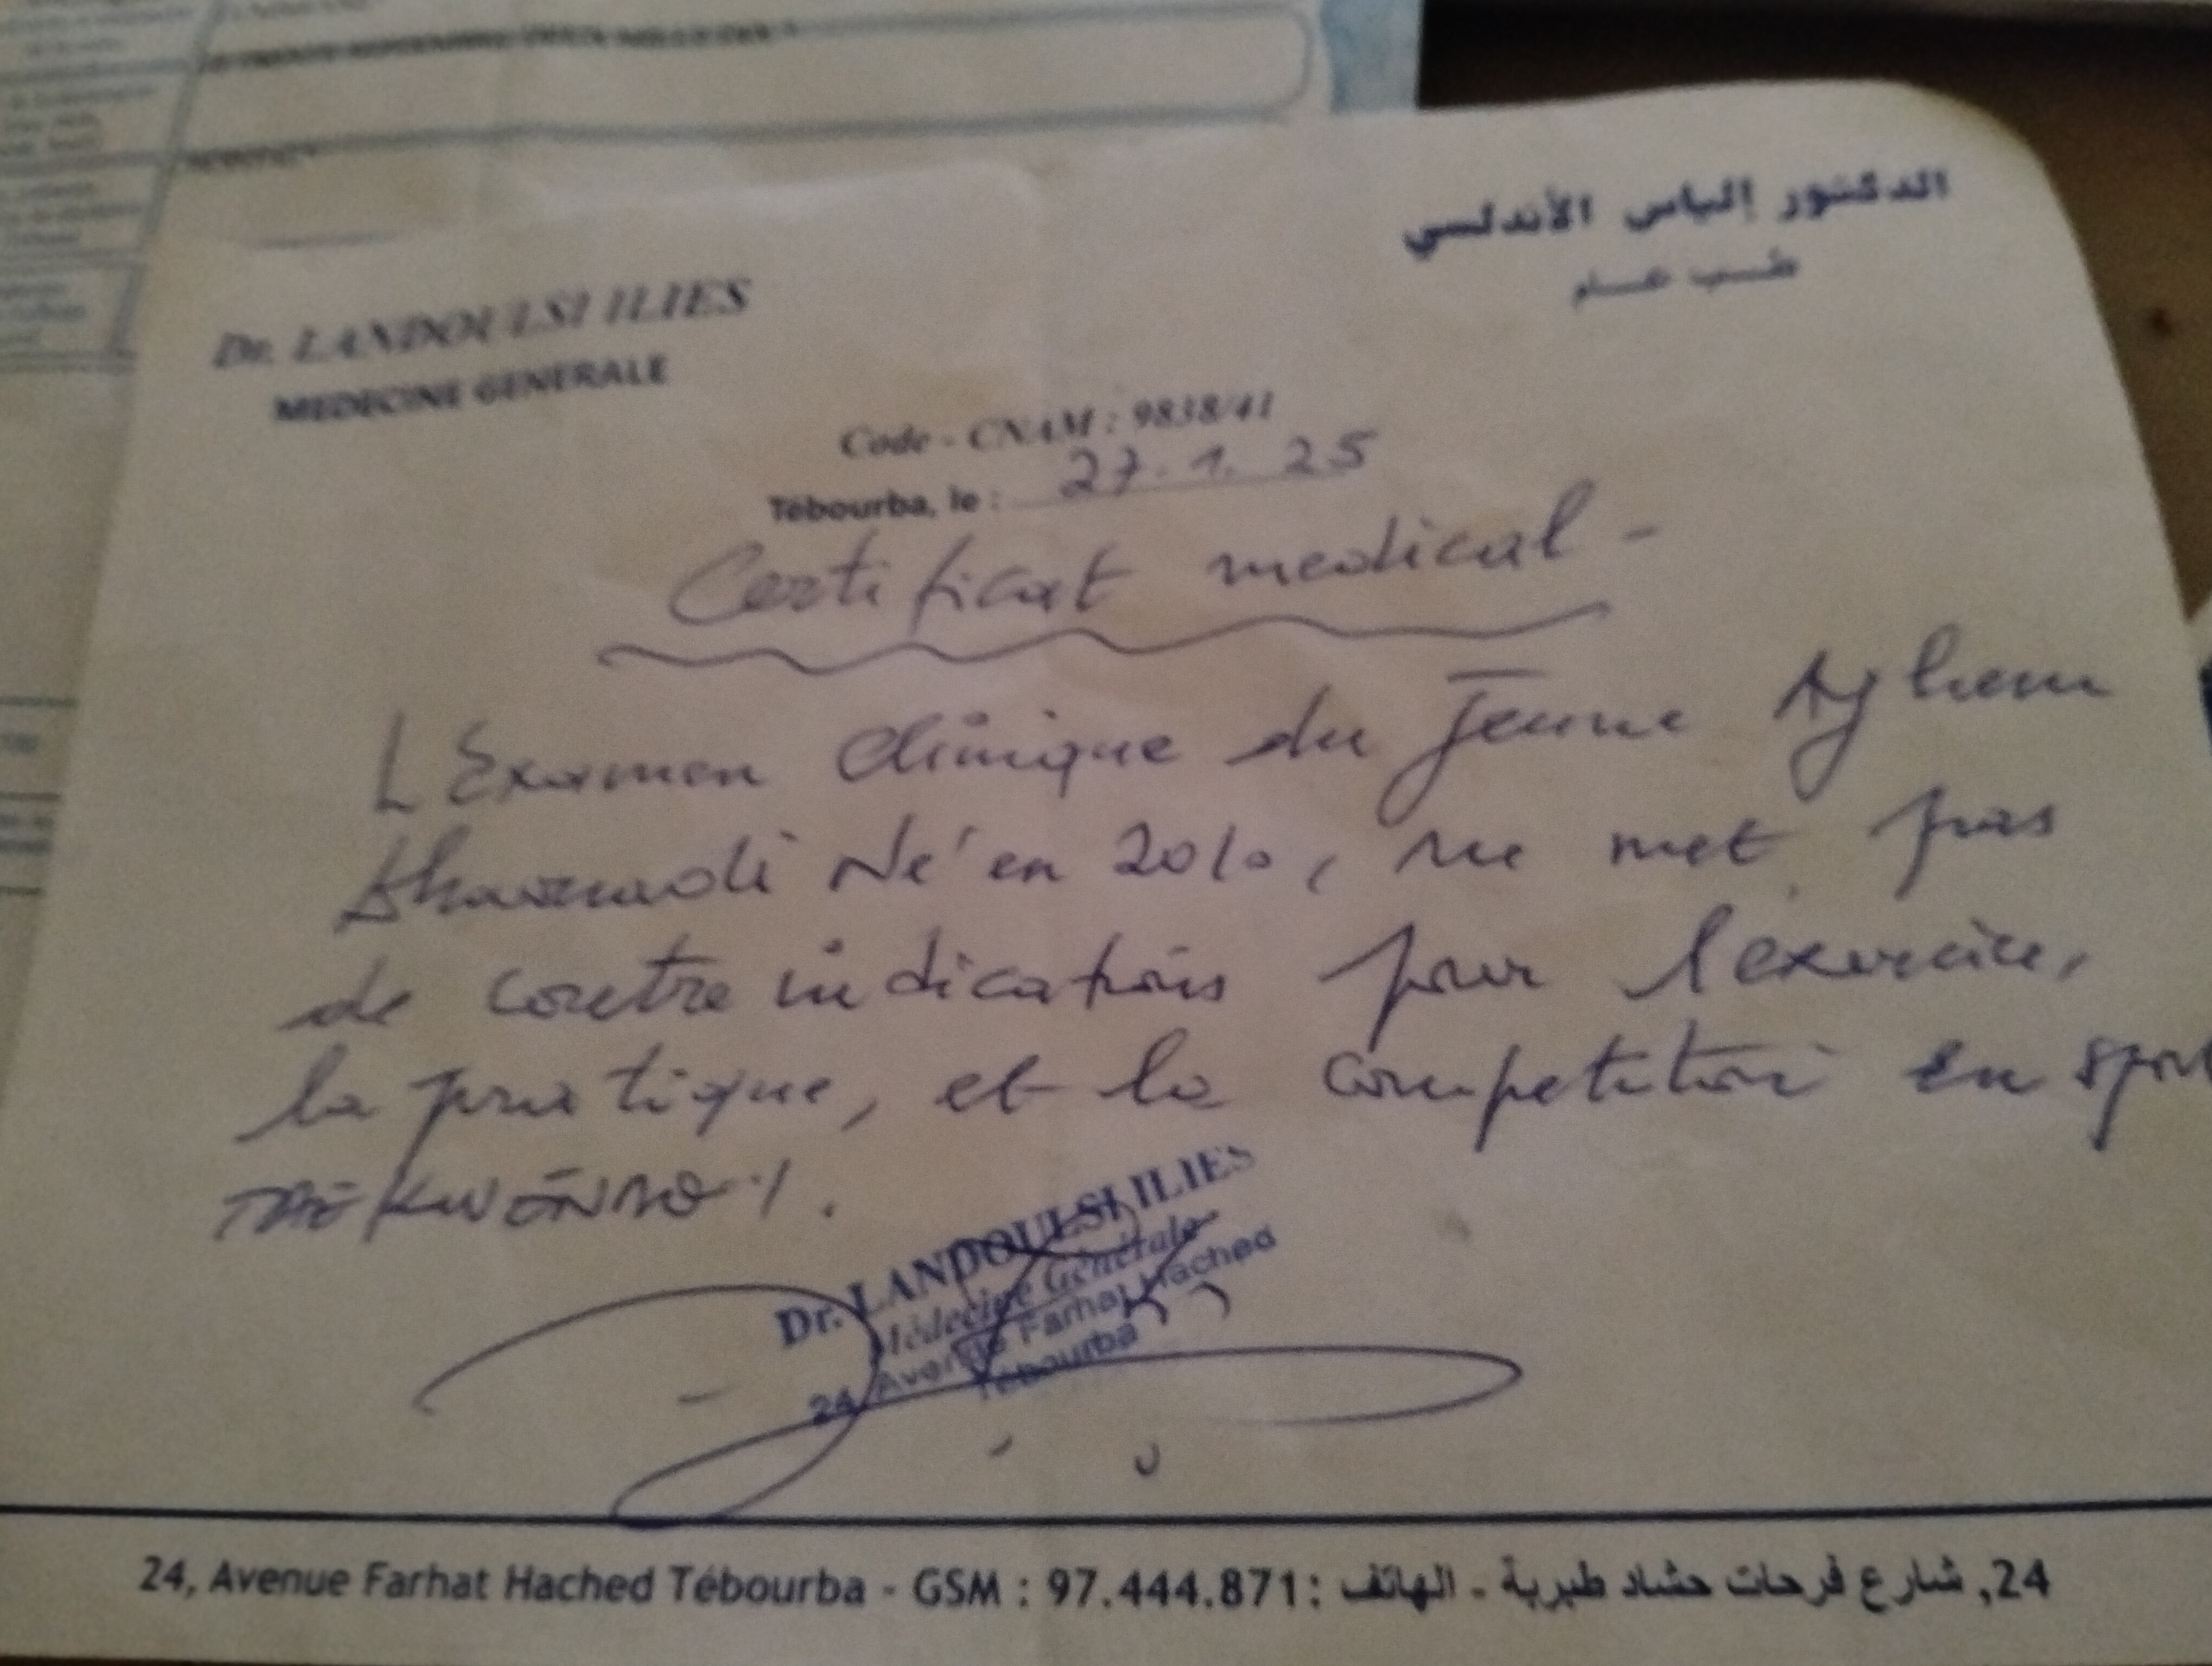 الدكتور إلياس الأندلسي
طب عام
Dr. LANDOULSI ILIES
MEDECINE GENERALE
Code - CNAM : 9838/41
Tébourba, le : 27.1.25
Certificat medical -
L'Examen clinique du Jeune Ayhem
Né en 2010, ne met pas
de contre indications pour l'exercice,
la pratique, et la competition en sport
TAEKWENDO
Dr. LANDOULSI ILIES
Médecine Générale
24, Avenue Farhat Hached
Tébourba
24, Avenue Farhat Hached Tébourba - GSM : 97.444.871 : الهاتف - 24, شارع فرحات حشاد طبربة